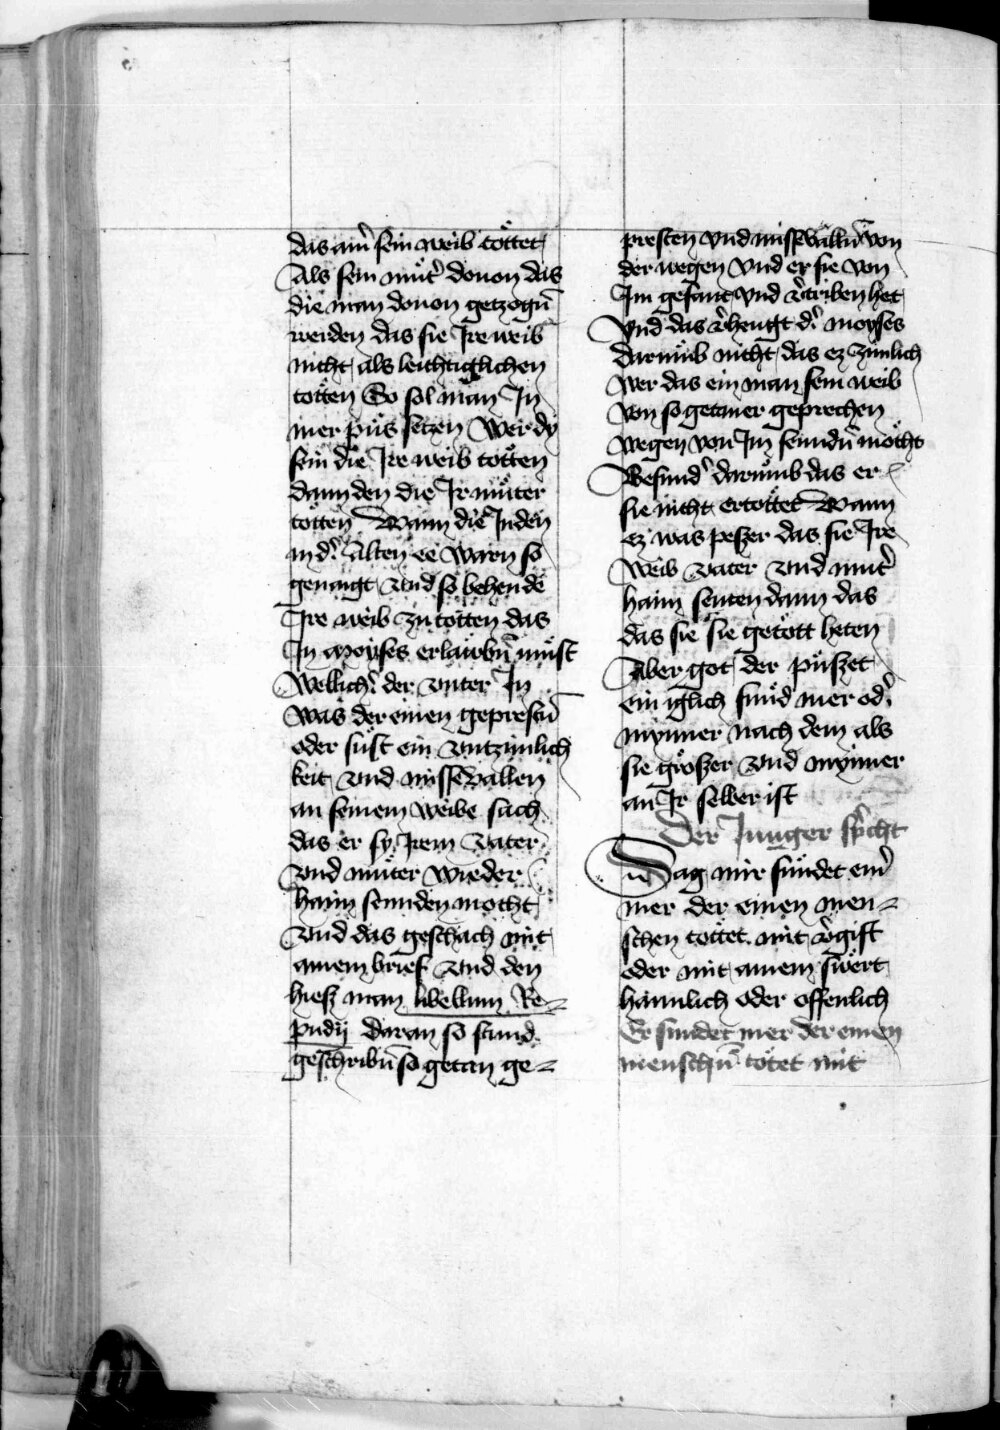 das ain̄ sein weib töttet
Als sein mut̄ douon das
die man douon getzogn̄
werden das sie Ire weib
nicht als leichtiglichen
totten So sol man In
mer pus setzen Wer dy
sein die Ire weib tötten
dann den die Ir muter
totten Wann die Juden
in d̄ alten ee warn so
genaigt vnd so behende
Ire weib zu totten das
In moyses erlawbn̄ must
Wellich̄ der vnter In
was der einen gepresen̄
oder sust ein vntzimlich
keit vnd missevallen
an seinem weibe sach
das er sy Irem vater
vnd muter wieder
haim sennden mocht
vnd das geschach mit
ainem brief vnd den
hiesz man libellum Re⸗
pudij daran so stund
geschribn̄ so getan ge⸗
presten vnd missvallū von
der wegen vnd er sie von
Im gesant vnd v̄triben het
vnd das v̄hengt d̄ moyses
darumb nicht das ez zimlich
wer das ein man sein weib
von so getaner geprechen
wegen von Im senndn̄ möcht
Besund̄ darumb das er
sie nicht ertöttet Wann
ez was peszer das sie Ire
weib vater vnd mut̄
haim senten dann das
das sie sie getött heten
Aber got der puszet
ein iglich sund mer od̄
mynner nach dem als
sie groszer vnd mynner
an Ir selber ist
Der Junger sp̄icht
Sag mir sundet ein̄
mer der einen men⸗
schen tottet mit v̄gift
oder mit ainem swert
haimlich oder offenlich
Er sundet mer der einen
menschn̄ totet mit